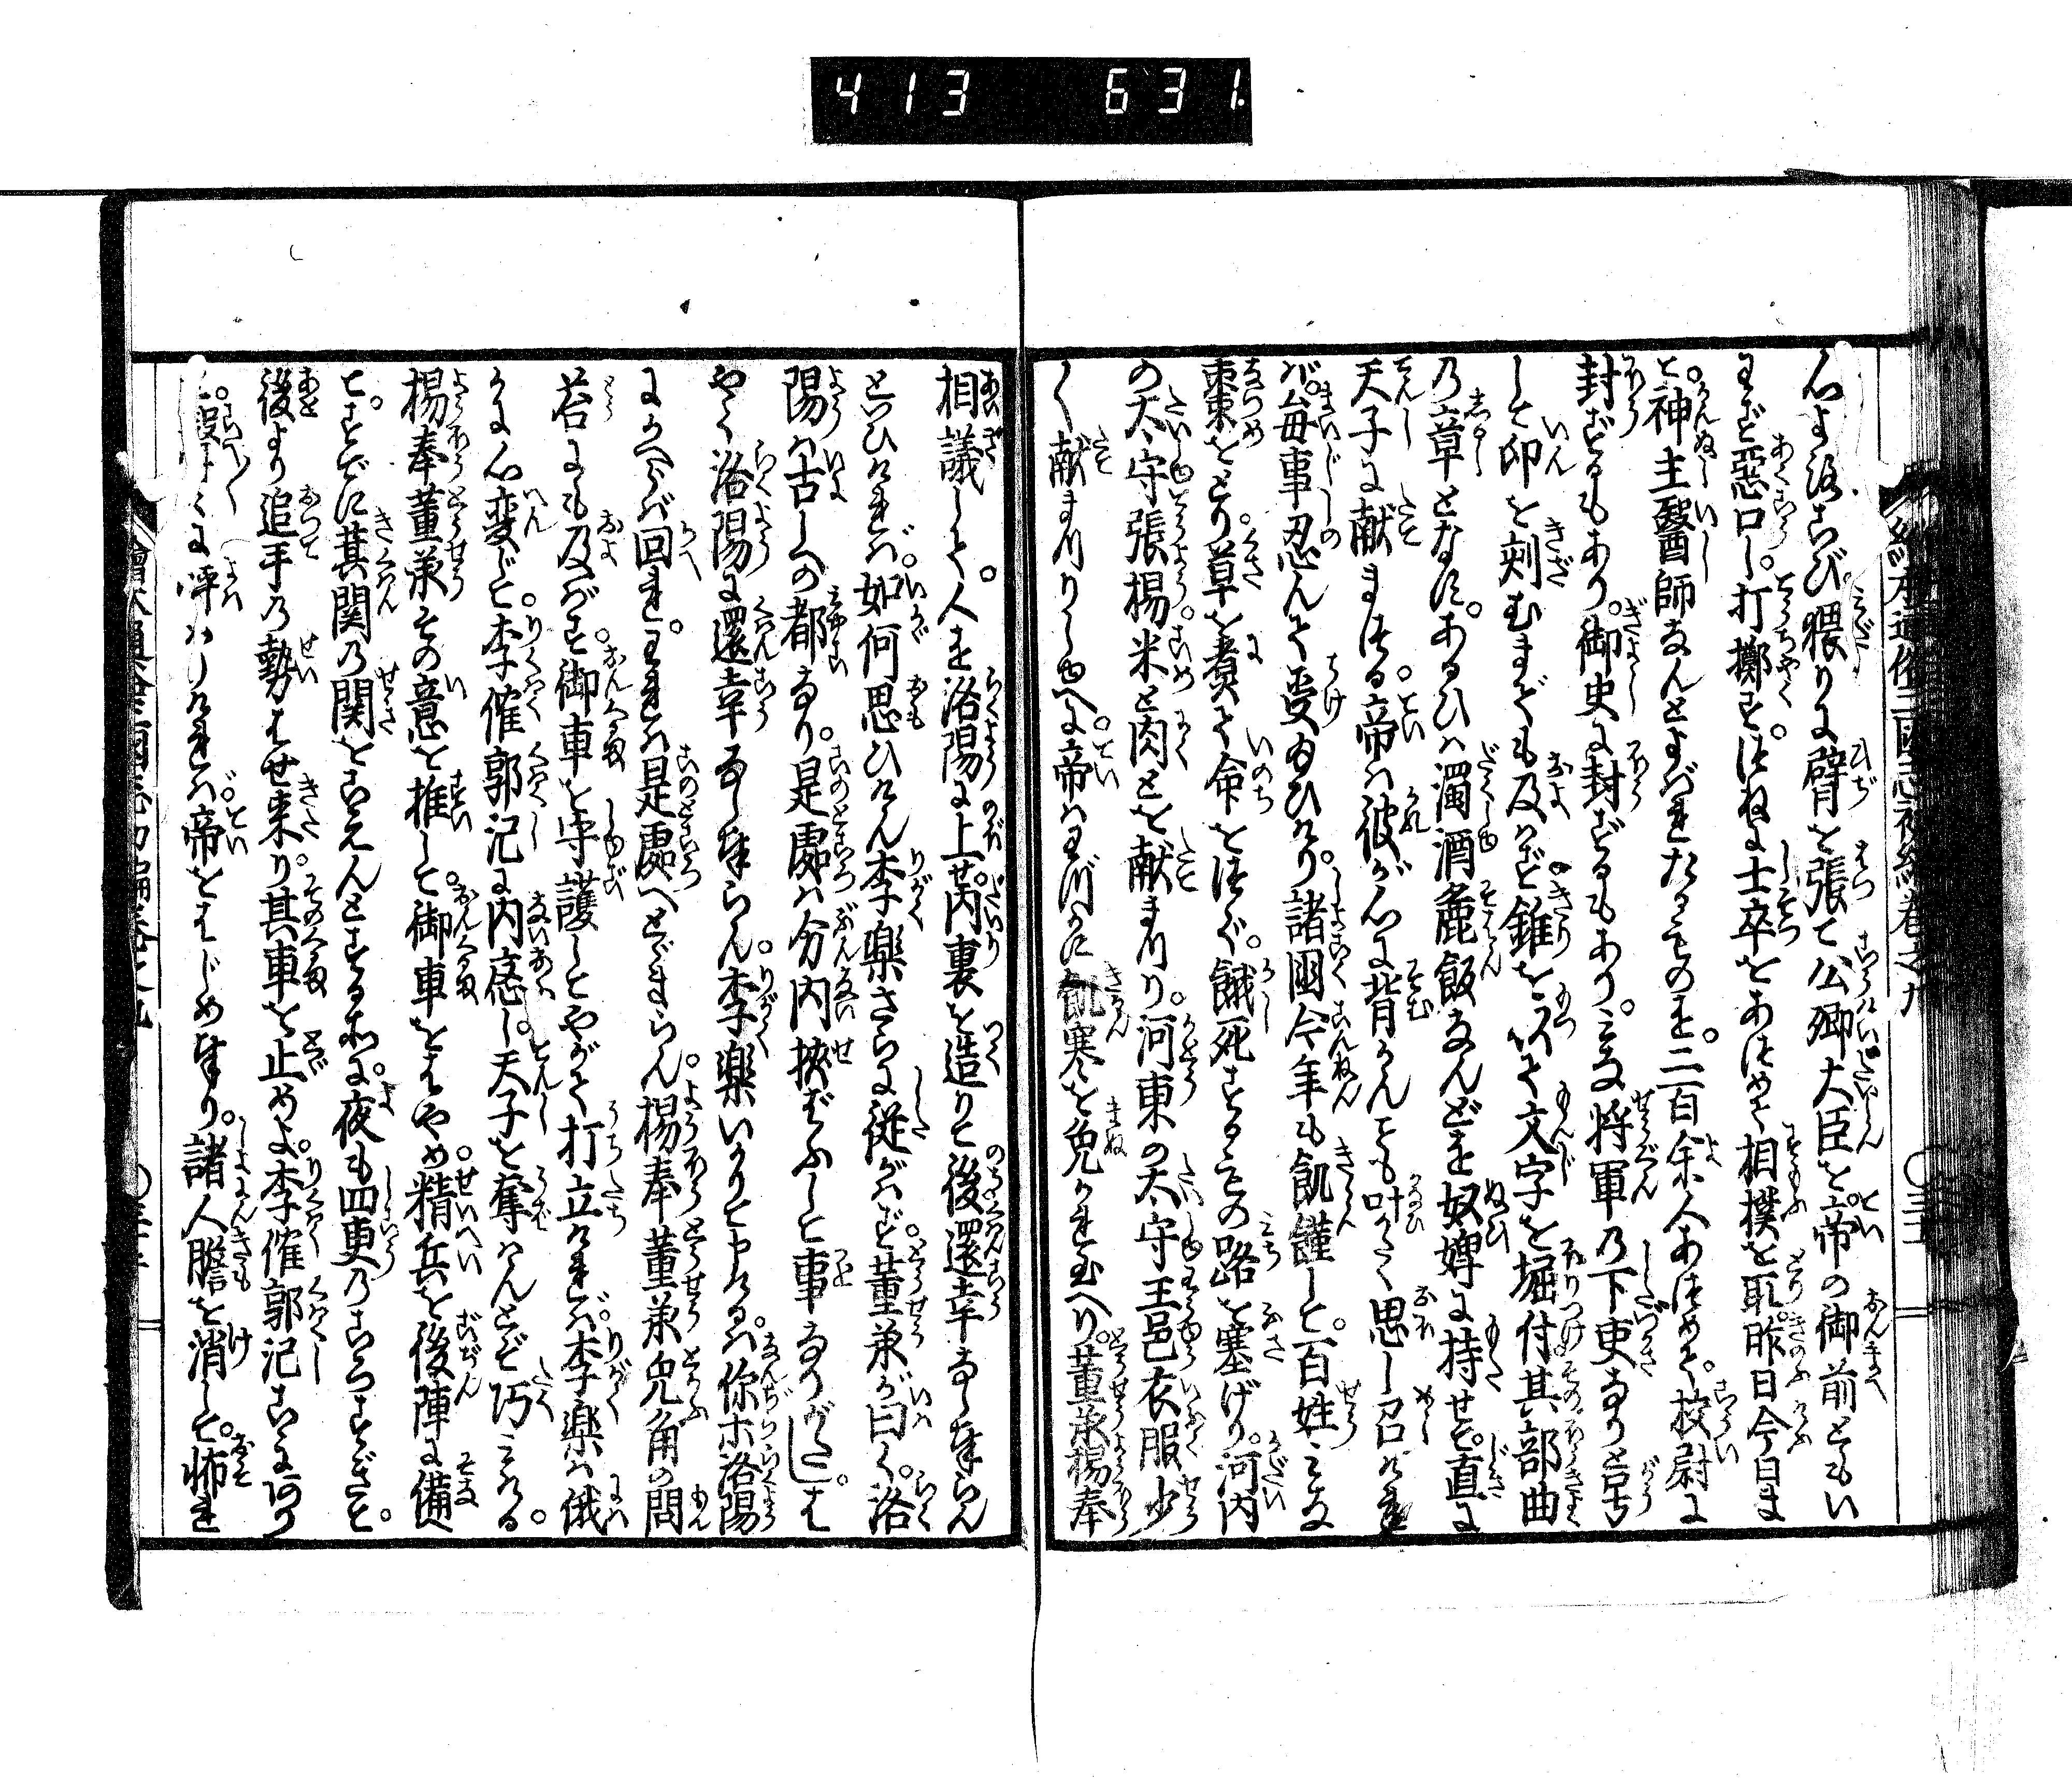 413 631.
心よ法こび猥りに臂を張て公卿大臣と帝の御前ともい
わず惡口し。打擲す。つねに士卒をあつめて相撲を取。昨日今日ま
で。神主醫師なんどよばれたるものを。二百余人あつめて。校尉に
封ずるもあり。御史に封ずるもあり。みな将軍の下吏なりと号
して印を刻むまでも及はず。錐をもつて文字を堀付其部曲
の章となす。あるひは濁酒麁飯なんどを奴婢に持せて。直に
天子に献まつる。帝は彼が心に背かんとも叶がたく思し召ければ
バ。毎事忍んで受玉ひけり。諸國今年も飢饉して。百姓みな
棗をとり。草を煑て命をつなぐ。餓死するもの路を塞げり。河内
の太守張楊米と肉とを献まつり。河東の太守王邑衣服少
く献まつりしゆへに。帝はわづかに飢寒を免かれ玉へり。董承楊奉
相議して。人を洛陽に上せ。内裏を造りて後還幸なし奉らん
といひければ。如何思ひけん李樂さらに従がはず。董承が曰く。洛
陽は古しへの都なり。是處は分内挾ばふして事なりがたし。は
やく洛陽に還幸なし奉らん。李樂いかりて申けるハ。你ホ洛陽
にかへらバ回れ。われは是處へとどまらん。楊奉董承兎角の問
荅にも及バず。御車を守護してやがて打立ければ。李樂は俄
かに心変じて。李傕郭汜に内應し。天子を奪はんとぞ巧ける。
楊奉董承その意を推して。御車をはやめ。精兵を後陣に備
て。すでに箕関の関をこえんとする処に。夜も四更のころすぎて。
後より追手の勢はせ来り。其車を止めよ。李傕郭汜こゝにあり
と。聲〱に呼はりければ。帝をはじめ奉り。諸人膽を消して。怖れ